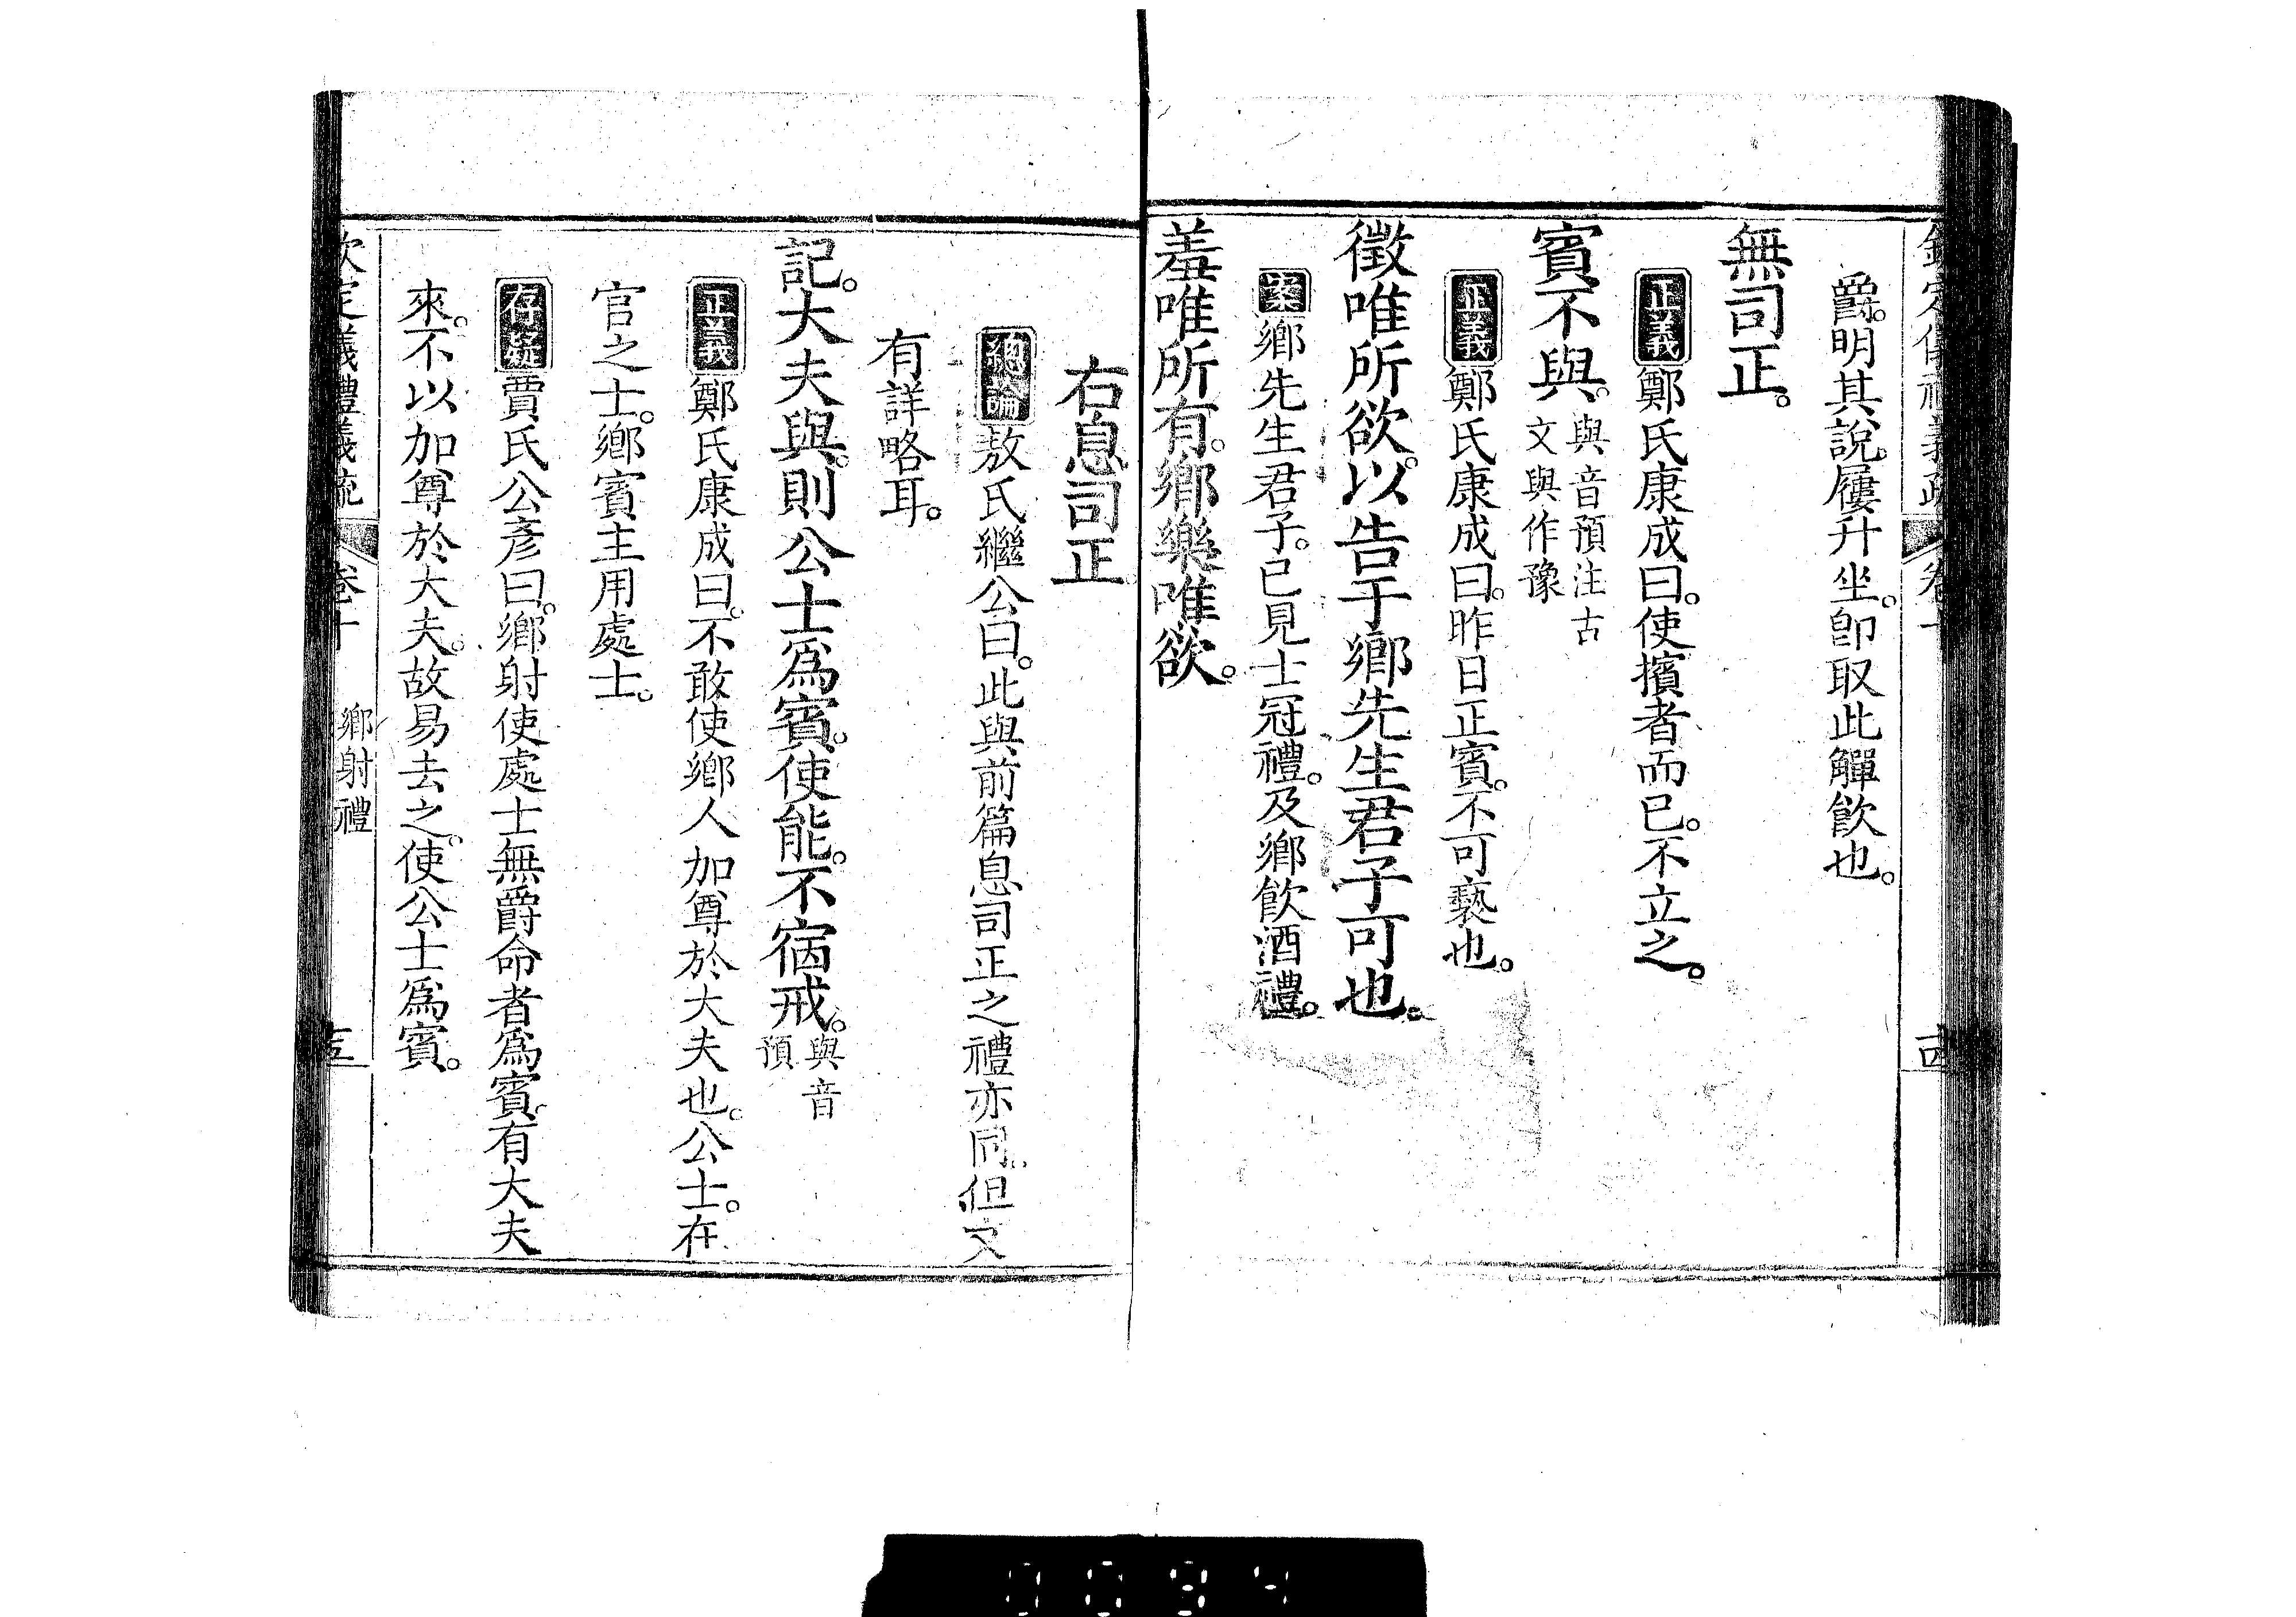 欽定儀禮義疏 卷十 古
爵。明其說。屨升坐。卽取此觶飮也。
無司正。
正義鄭氏康成曰。使擯者而已。不立之。
賓不與。與音預注古文與作豫
正義鄭氏康成曰。昨日正賓。不可褻也。
徵唯所欲。以告于鄕先生君子可也。
案鄕先生君子。已見士冠禮。及鄕飮酒禮。
羞唯所有。鄕樂唯欲。
右息司正
總論敖氏繼公曰。此與前篇息司正之禮亦同。但文
有詳略耳。
記。大夫與。則公士爲賓。使能。不宿戒。與音預
正義鄭氏康成曰。不敢使鄕人加尊於大夫也。公士。在
官之士。鄕賓主用處士。
存疑賈氏公彥曰。鄕射使處士無爵命者爲賓。有大夫
來。不以加尊於大夫。故易去之。使公士爲賓。
欽定儀禮義疏 卷十 鄕射禮